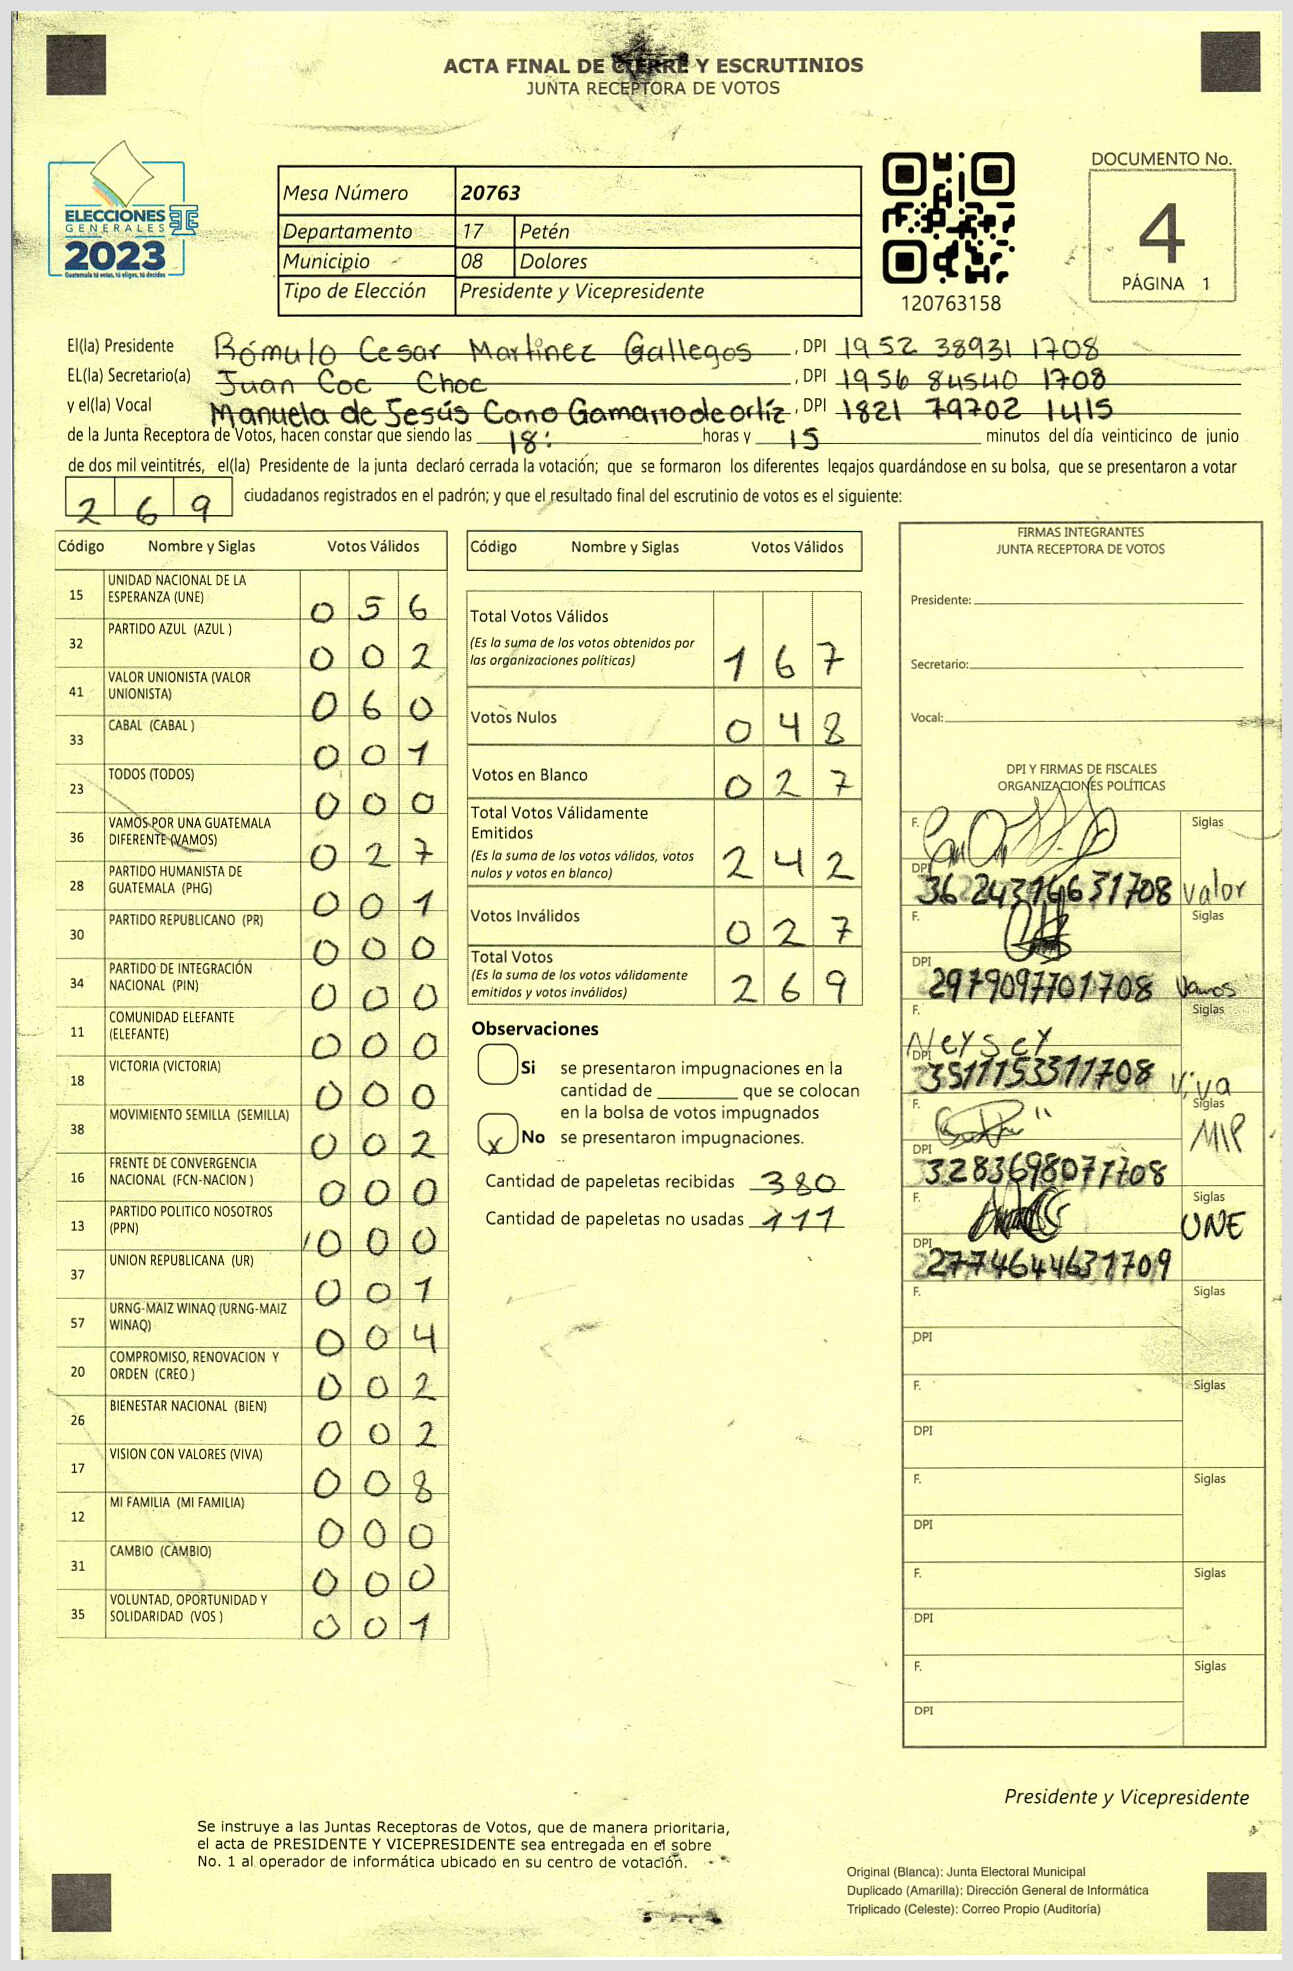 ACTA FINAL DE CIERRE Y ESCRUTINIOS
JUNTA RECEPTORA DE VOTOS
ELECCIONES
GENERALES
2023
Guatemala tú votas, tú eliges, tú decides
Mesa Número 20763
Departamento 17 Petén
Municipio 08 Dolores
Tipo de Elección Presidente y Vicepresidente
120763158
DOCUMENTO No.
4
PÁGINA 1
El(la) Presidente Rómulo Cesar Martinez Gallegos, DPI 1952 38931 1708
EL(la) Secretario(a) Juan Coc Choc, DPI 1956 84540 1708
y el(la) Vocal Manuela de Jesús Cano Gamarro de ortíz, DPI 1821 79702 1415
de la Junta Receptora de Votos, hacen constar que siendo las 18: horas y 15 minutos del día veinticinco de junio
de dos mil veintitrés, el(la) Presidente de la junta declaró cerrada la votación; que se formaron los diferentes legajos guardándose en su bolsa, que se presentaron a votar
269 ciudadanos registrados en el padrón; y que el resultado final del escrutinio de votos es el siguiente:
Código Nombre y Siglas Votos Válidos
15 UNIDAD NACIONAL DE LA ESPERANZA (UNE) 0 5 6
32 PARTIDO AZUL (AZUL ) 0 0 2
41 VALOR UNIONISTA (VALOR UNIONISTA) 0 6 0
33 CABAL (CABAL ) 0 0 1
23 TODOS (TODOS) 0 0 0
36 VAMOS POR UNA GUATEMALA DIFERENTE (VAMOS) 0 2 7
28 PARTIDO HUMANISTA DE GUATEMALA (PHG) 0 0 1
30 PARTIDO REPUBLICANO (PR) 0 0 0
34 PARTIDO DE INTEGRACIÓN NACIONAL (PIN) 0 0 0
11 COMUNIDAD ELEFANTE (ELEFANTE) 0 0 0
18 VICTORIA (VICTORIA) 0 0 0
38 MOVIMIENTO SEMILLA (SEMILLA) 0 0 2
16 FRENTE DE CONVERGENCIA NACIONAL (FCN-NACION ) 0 0 0
13 PARTIDO POLITICO NOSOTROS (PPN) 0 0 0
37 UNION REPUBLICANA (UR) 0 0 1
57 URNG-MAIZ WINAQ (URNG-MAIZ WINAQ) 0 0 4
20 COMPROMISO, RENOVACION Y ORDEN (CREO ) 0 0 2
26 BIENESTAR NACIONAL (BIEN) 0 0 2
17 VISION CON VALORES (VIVA) 0 0 8
12 MI FAMILIA (MI FAMILIA) 0 0 0
31 CAMBIO (CAMBIO) 0 0 0
35 VOLUNTAD, OPORTUNIDAD Y SOLIDARIDAD (VOS ) 0 0 1
Código Nombre y Siglas Votos Válidos
Total Votos Válidos 1 6 7
(Es la suma de los votos obtenidos por
las organizaciones políticas)
Votos Nulos 0 4 8
Votos en Blanco 0 2 7
Total Votos Válidamente
Emitidos 2 4 2
(Es la suma de los votos válidos, votos
nulos y votos en blanco)
Votos Inválidos 0 2 7
Total Votos 2 6 9
(Es la suma de los votos válidamente
emitidos y votos inválidos)
Observaciones
Si se presentaron impugnaciones en la
cantidad de ________ que se colocan
en la bolsa de votos impugnados
x No se presentaron impugnaciones.
Cantidad de papeletas recibidas 380
Cantidad de papeletas no usadas 111
FIRMAS INTEGRANTES
JUNTA RECEPTORA DE VOTOS
Presidente:
Secretario:
Vocal:
DPI Y FIRMAS DE FISCALES
ORGANIZACIONES POLÍTICAS
F. Siglas
DPI valor
F. Siglas
DPI 2979097701708 Vamos
F. Neysey Siglas
DPI 3511153311708 Viva
F. Siglas
MLP
DPI 3283698071708
F. Siglas
UNE
DPI 2774644631709
F. Siglas
DPI
F. Siglas
DPI
F. Siglas
DPI
F. Siglas
DPI
F. Siglas
DPI
Presidente y Vicepresidente
Se instruye a las Juntas Receptoras de Votos, que de manera prioritaria,
el acta de PRESIDENTE Y VICEPRESIDENTE sea entregada en el sobre
No. 1 al operador de informática ubicado en su centro de votación.
Original (Blanca): Junta Electoral Municipal
Duplicado (Amarilla): Dirección General de Informática
Triplicado (Celeste): Correo Propio (Auditoría)